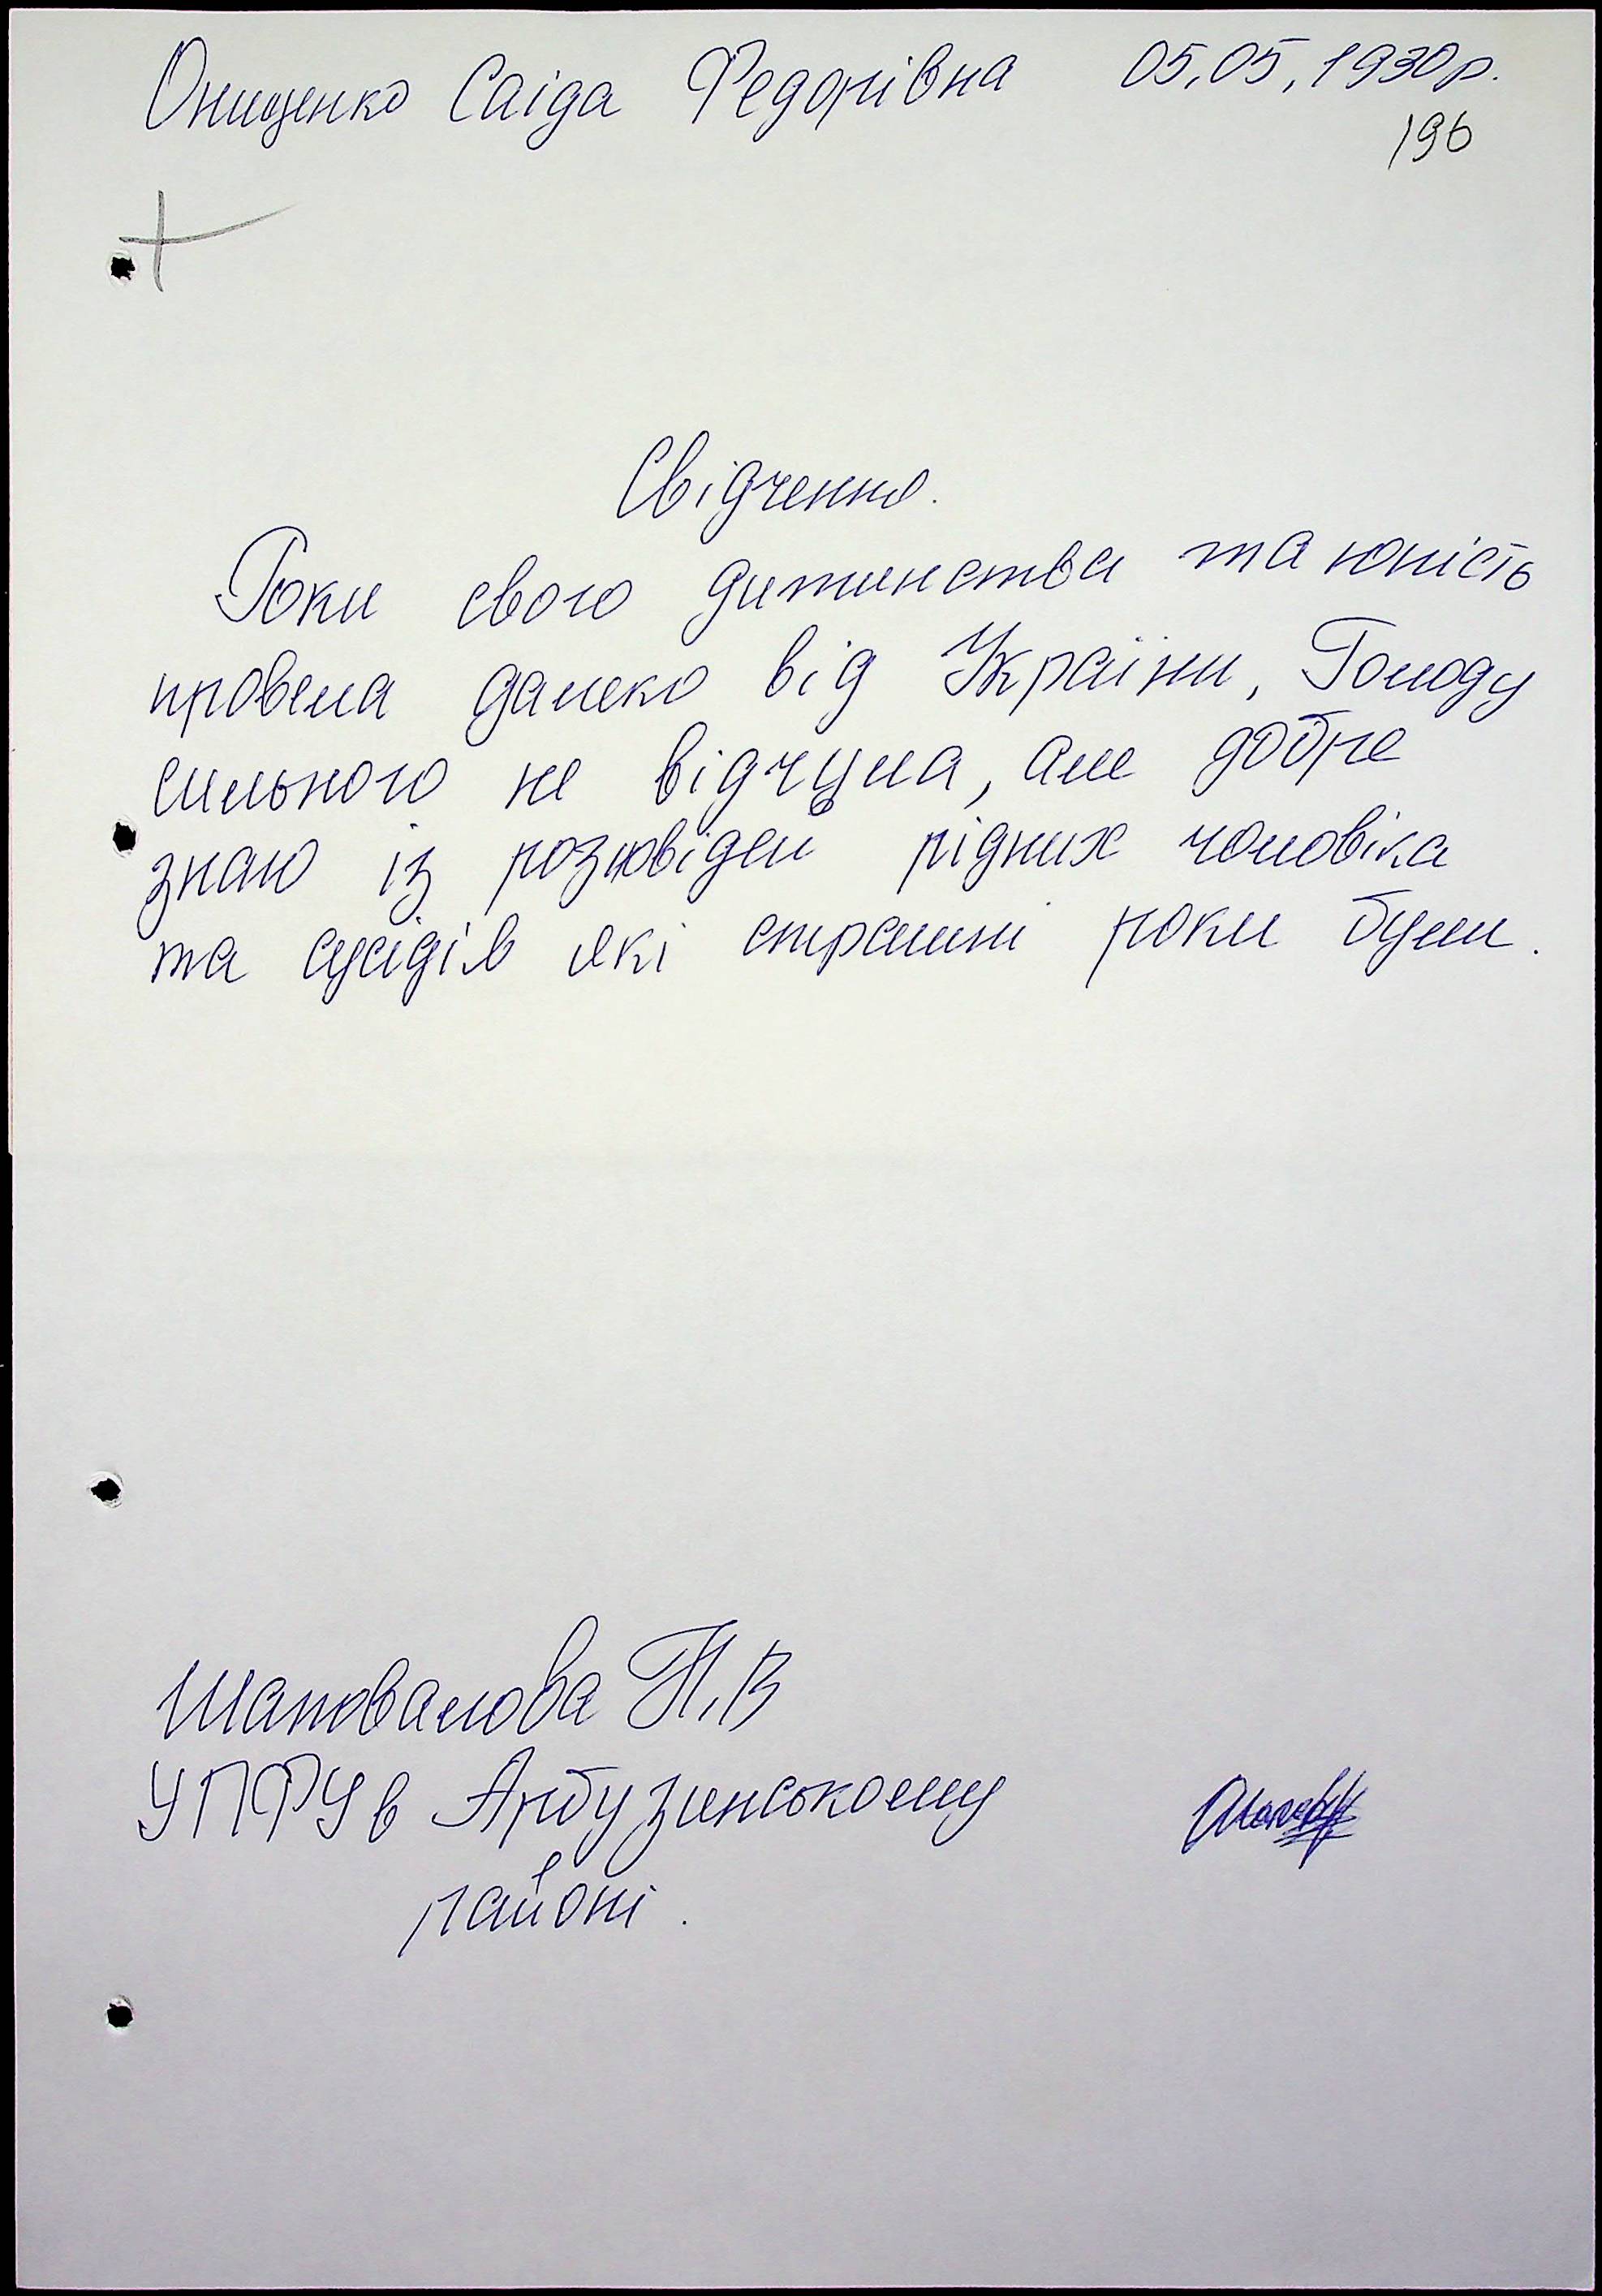 Онищенко Саіда Федорівна 05.05.1930р.
196
Свідчення.
Роки свого дитинства та юність
провела далеко від України, Голоду
сильного не відчула, але добре
знаю із розповідей рідних чоловіка
та сусідів які страшні роки були.
Шаповалова Т.В
УПФУ в Арбузинському
районі.